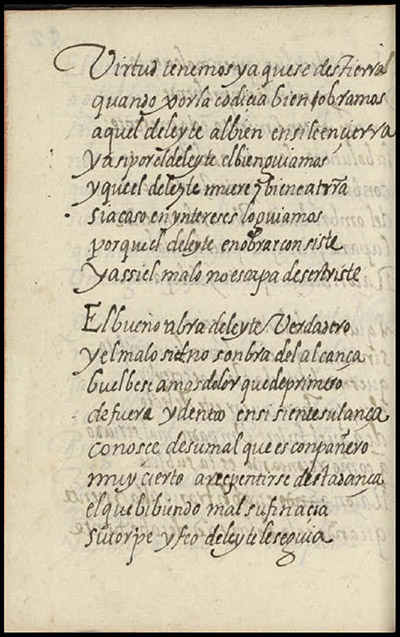 Virtud tenemos ya que se destierra
quando por la codicia bien obramos
aquel deleyte al bien en si le encierra
y asi por el deleyte el bien guiamos
y que el deleyte muere y bien
si acaso en yntereses lo guiamos
porque el deleyte en obrar consiste
y assi el malo no escapa de ser triste
El bueno abra deleyte Verdadero
y el malo si el no sonbra del alcança
buelbese a mas dolor que de primero
de fuera y dentro en si siente su lança
conosce de su mal que es conpañero
muy cierto arrepentirse
el que bibiendo mal su fin acia
su torpe y feo deleyte le seguia